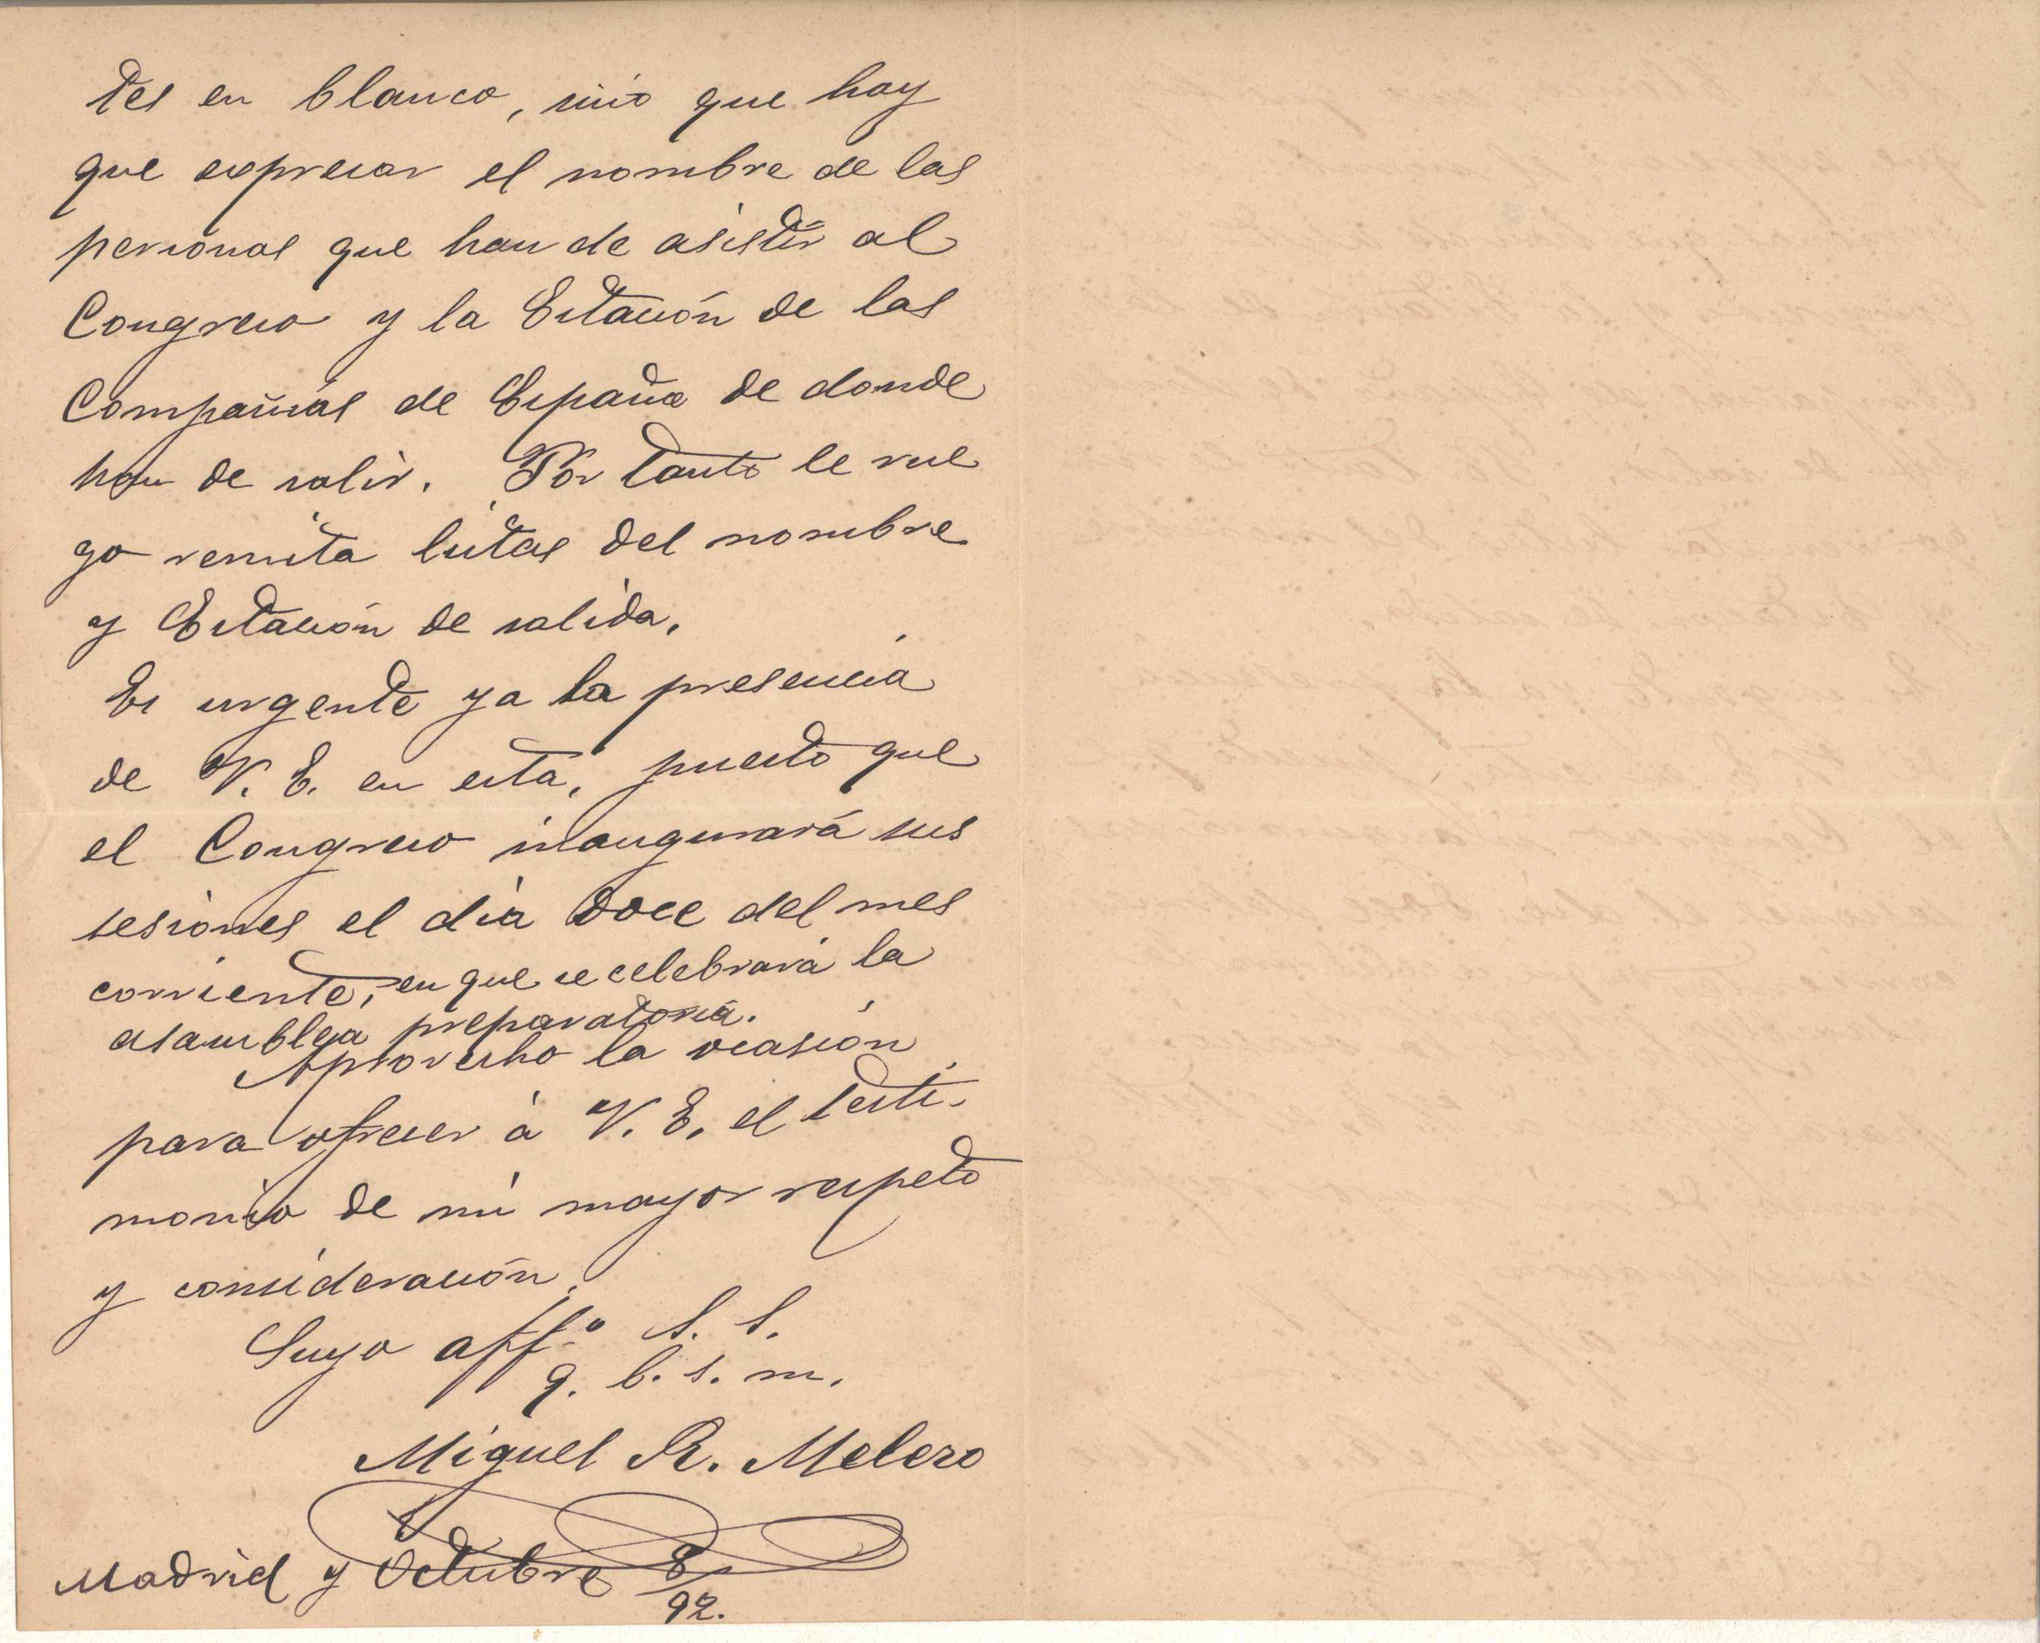 tes en blanco, sinó que hay
que expresar el nombre de las
personas que han de asistir al
Congreso y la Estación de las
Compañías de España de donde
han de salir. Por tanto le rue
go remita listas del nombre
y Estación de salida.
Es urgente ya la presencia
de V. E. en esta, puesto que
el Congreso inaugurará sus
sesiones el día doce del mes
corriente, en que se celebrará la
asamblea preparatoria.
Aprovecho la ocasión
para ofrecer á V. E. el testi-
monio de mi mayor respeto
y consideración.
Suyo aff.º S. S.
q. b. s. m.
Miguel R. Melero
Madrid y Octubre 8/92.